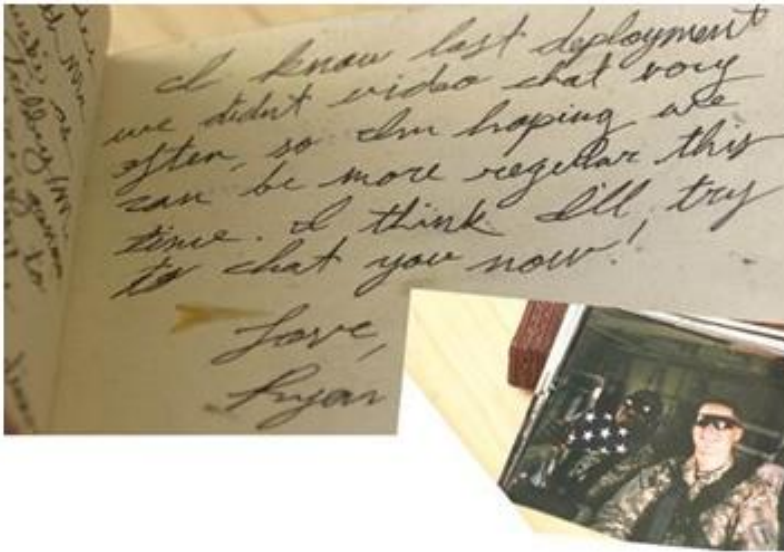 I know last deployment
we didnt video chat very
often, so Im hoping we
can be more regular this
time. I think I'll try
to chat you now!
Love,
Ryan